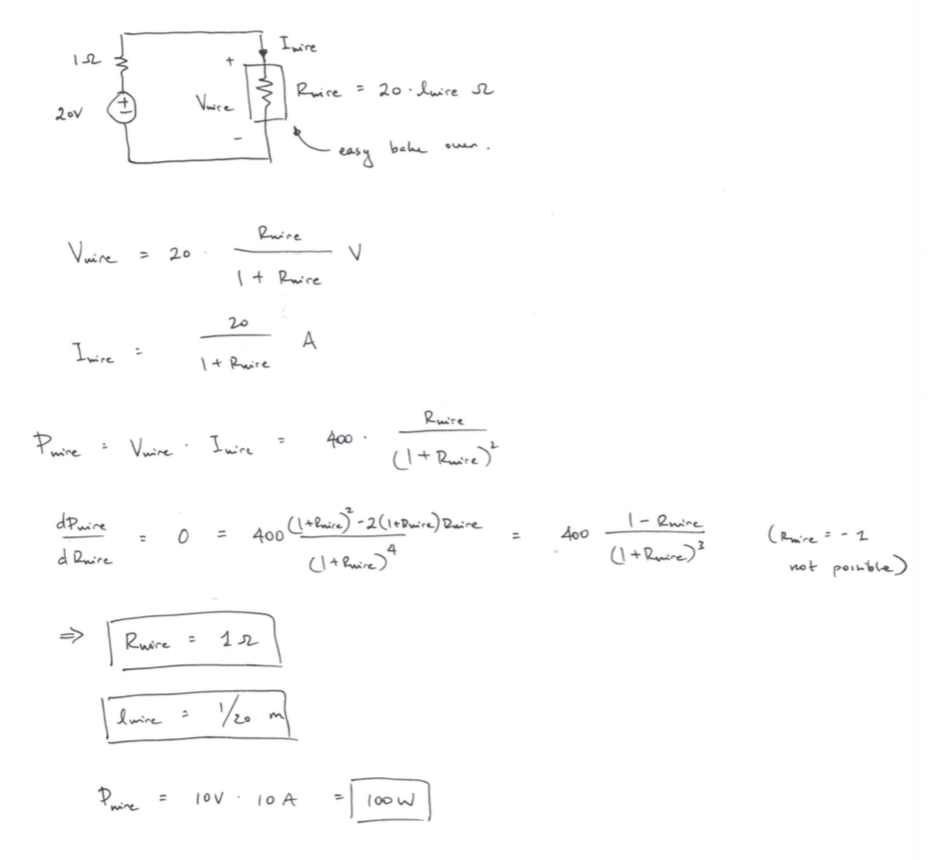 1Ω
+ I_wire
20V V_wire R_wire = 20 · l_wire Ω
-
easy bake oven.
V_wire = 20 · R_wire / (1 + R_wire) V
I_wire = 20 / (1 + R_wire) A
P_wire = V_wire · I_wire = 400 · R_wire / (1 + R_wire)²
dP_wire / dR_wire = 0 = 400 ((1+R_wire)² - 2(1+R_wire)R_wire) / (1+R_wire)⁴ = 400 (1 - R_wire) / (1+R_wire)³ (R_wire = -1
not possible)
⇒ R_wire = 1Ω
l_wire = 1/20 m
P_wire = 10V · 10A = 100W